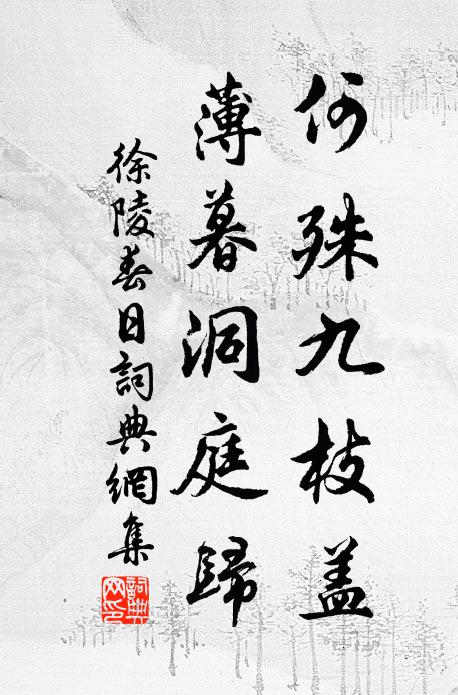 何殊九枝盖
薄暮洞庭歸
徐陵春日詞典網集
詞典网印